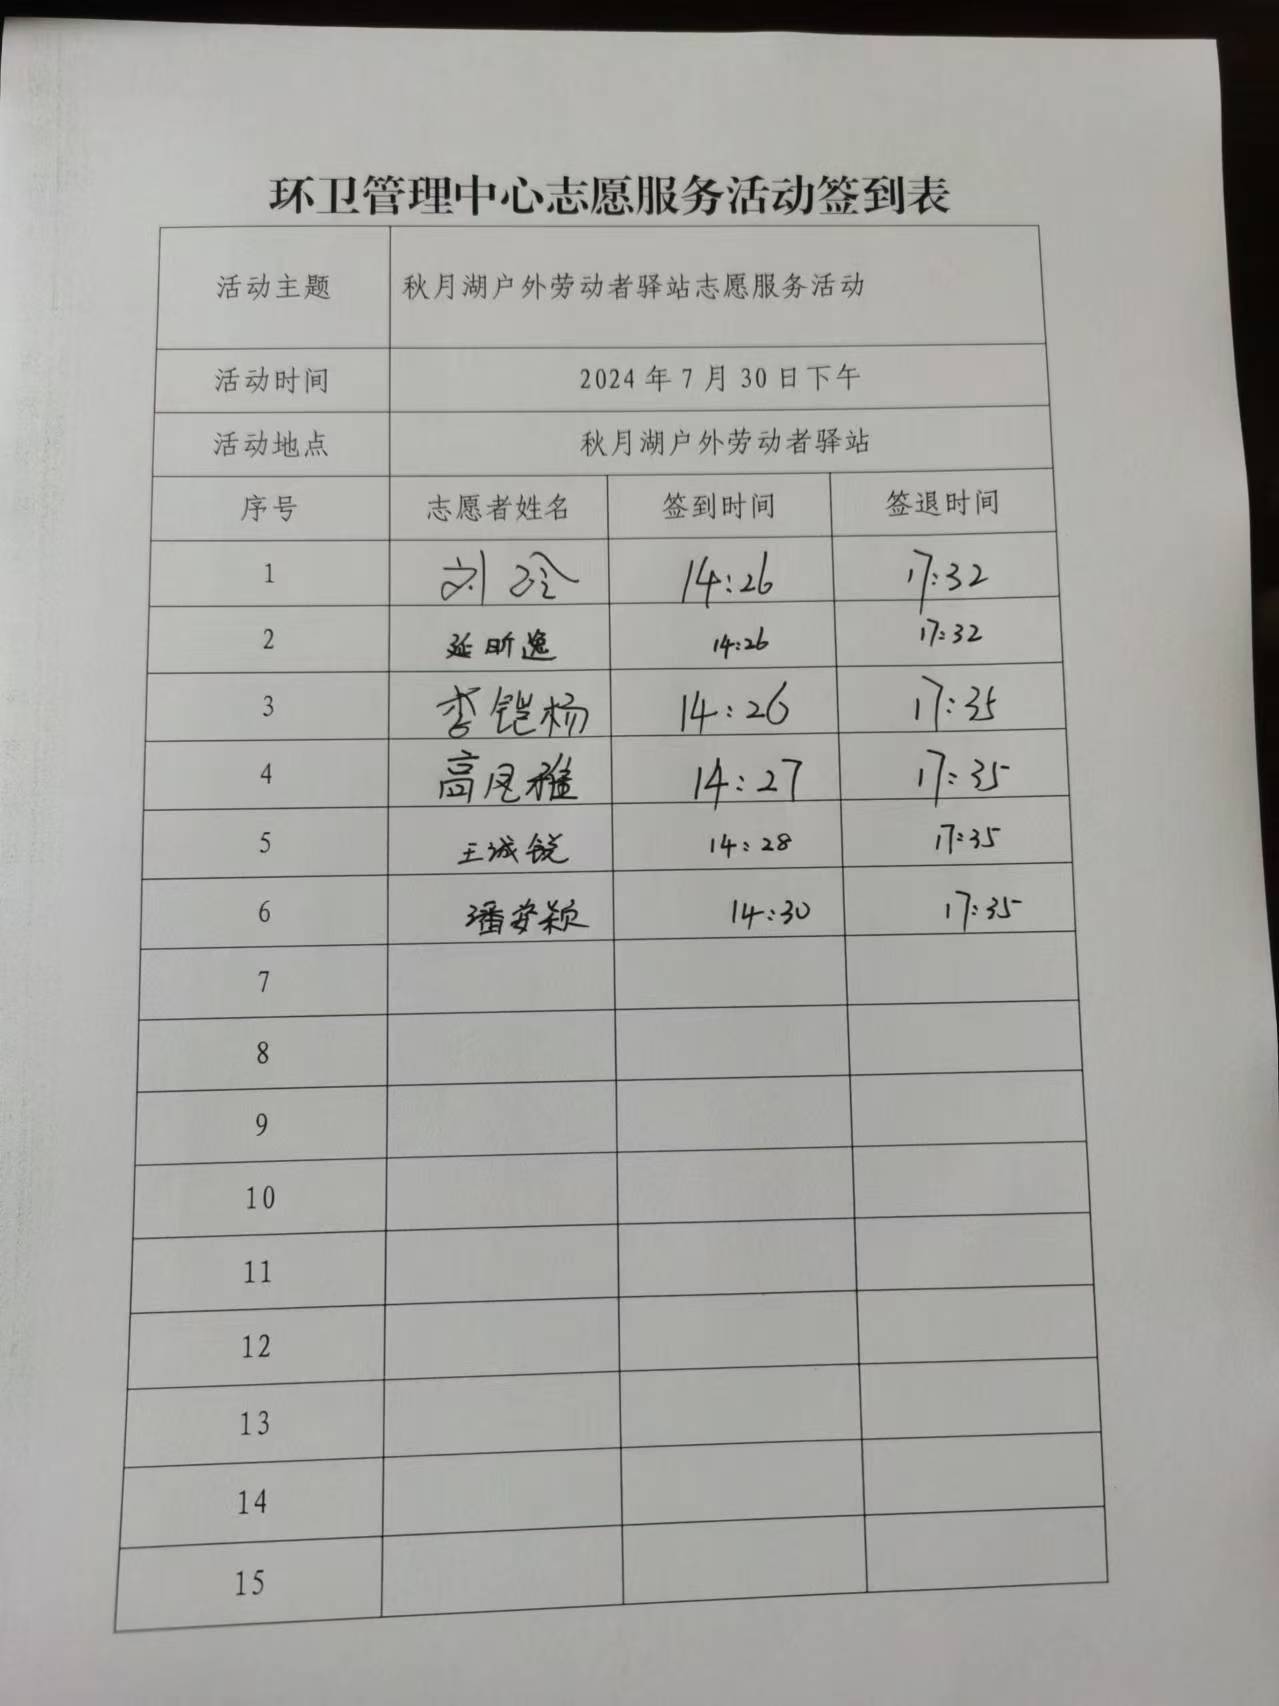 环卫管理中心志愿服务活动签到表
活动主题 秋月湖户外劳动者驿站志愿服务活动
活动时间 2024年7月30日下午
活动地点 秋月湖户外劳动者驿站
序号 志愿者姓名 签到时间 签退时间
1 刘玲 14:26 17:32
2 延昕逸 14:26 17:32
3 李铠杨 14:26 17:35
4 高凤雅 14:27 17:35
5 王诚锐 14:28 17:35
6 潘安颖 14:30 17:35
7
8
9
10
11
12
13
14
15